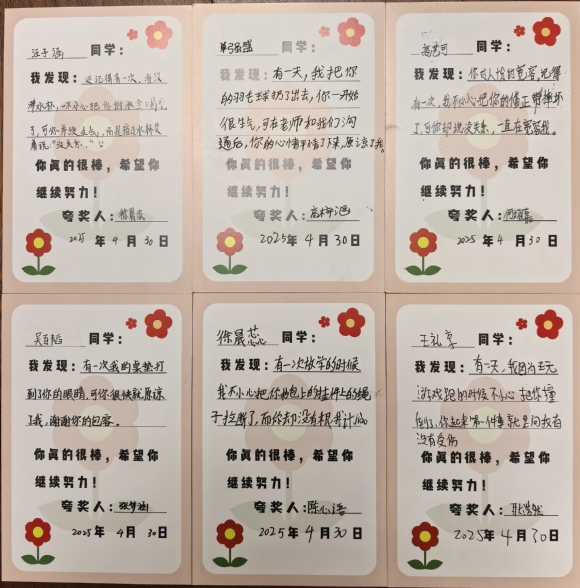 汪子涵 同学：
我发现：还记得有一次，我没
可你
着说："没关系。"
你真的很棒，希望你
继续努力！
夸奖人：徐晨蕊
2025 年 4 月 30 日
同学：
我发现：有一天，我把你
的羽毛球扔了出去，你一开始
很生气，可在老师和我们沟
通后，你的心情平息了下来，原谅了我。
你真的很棒，希望你
继续努力！
夸奖人：
2025年 4 月 30 日
高艺可 同学：
我发现：你对人很的宽容，记得
有一次，我不小心把你的修正带摔坏
了，可你却说没关系，一直在宽容我。
你真的很棒，希望你
继续努力！
夸奖人：
2025 年 4 月 30 日
吴百韬 同学：
我发现：有一次我的桌垫打
到了你的眼睛，可你很快就原谅
了我，谢谢你的包容。
你真的很棒，希望你
继续努力！
夸奖人：张梦涵
2025 年 4 月 30 日
徐晨蕊 同学：
我发现：有一次放学的时候
我不小心把你书包上的挂件上的绳
子拉断了，而你却没有和我计较
你真的很棒，希望你
继续努力！
夸奖人：陈心语
2025 年 4 月 30 日
王礼享 同学：
我发现：有一天，我因为在玩
游戏跑的时候不小心把你撞
倒了，你起来第一件事就是问我有
没有受伤
你真的很棒，希望你
继续努力！
夸奖人：耿浩然
2025年 4 月 30 日